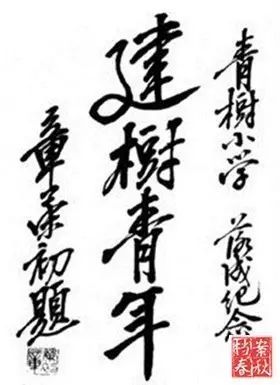 青樹小学 落成纪念
建樹青年
章柔初題